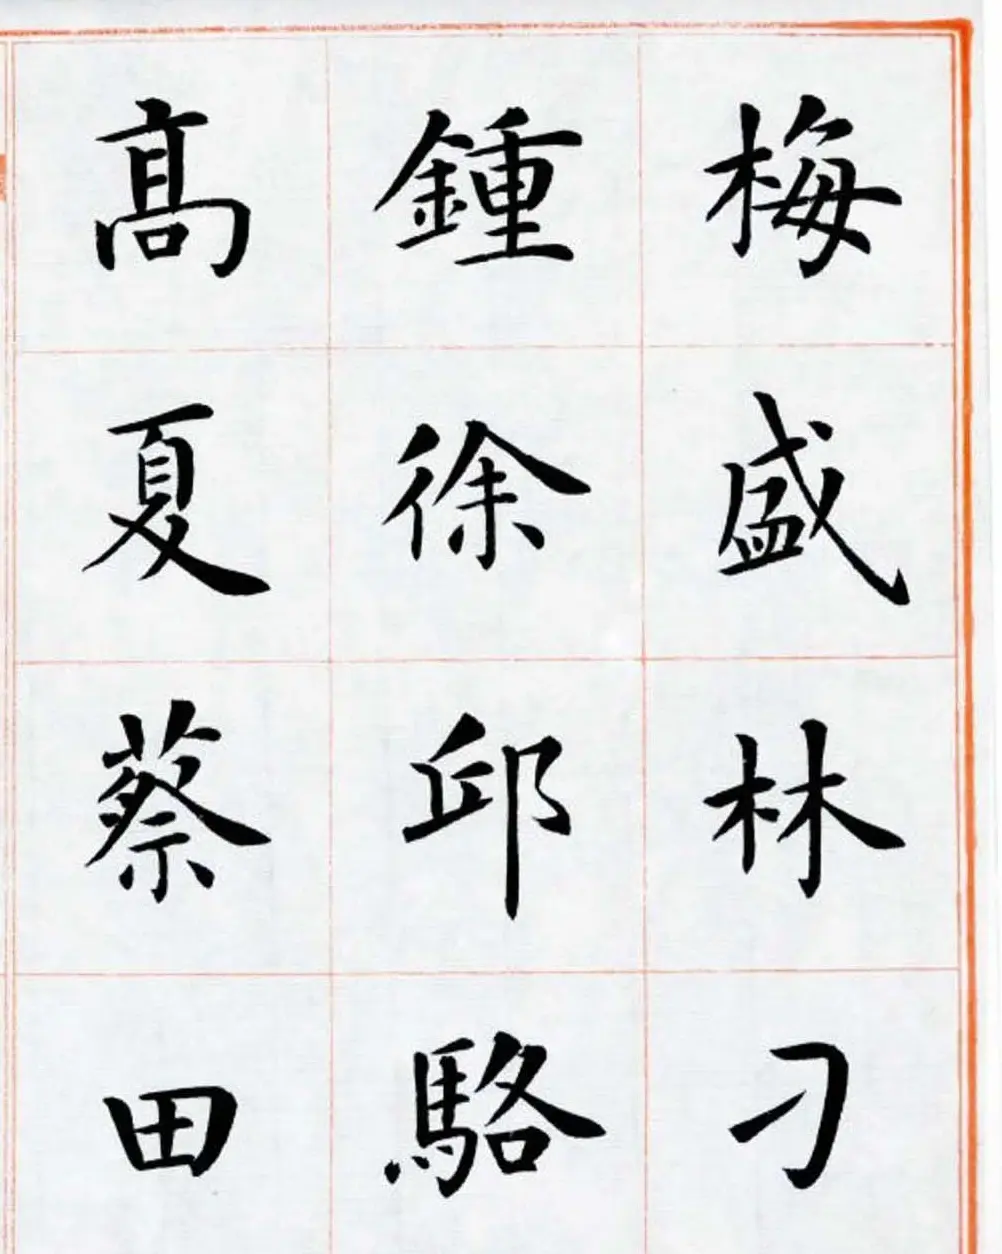 梅盛林刁
鍾徐邱駱
髙夏蔡田